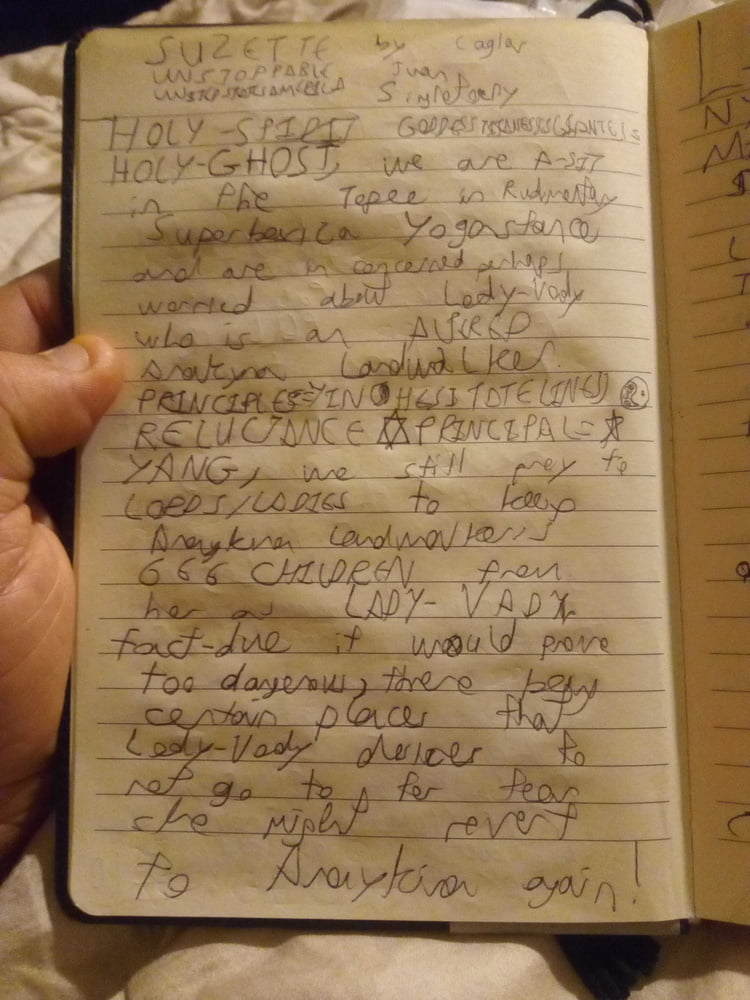 SUZETTE by Caglar
UNSTOPPABLE Juan
Singletary
HOLY-SPIRIT
HOLY-GHOST, we are A-SIT
in the Tepee in Rudmentay
Yogastance
and are in concerned perhaps
worried about Lady-Vady
who is an ALTERED
Anakyna Landwalker.
PRINCIPLES=YIN HESITOTELINES)
RELUCTANCE ☆ PRINCIPAL= ☆
YANG, we still prey to
LORDS/LADIES to keep
Anaykina Landwalker's
666 CHILDREN from
her as LADY-VADY
fact-due it would prove
too dangerous, there being
certain places that
Lady-Vady desires to
not go to, for fear
she might revert
to Anaykina again!
L
N
M
$